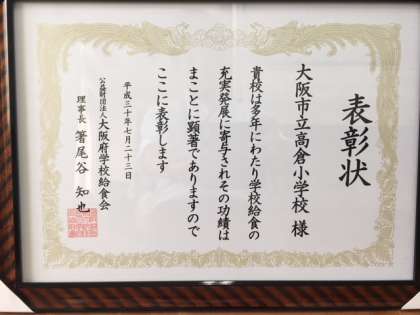 表彰状
大阪市立高倉小学校 様
貴校は多年にわたり学校給食の
充実発展に寄与されその功績は
まことに顕著でありますので
ここに表彰します
平成三十年七月二十三日
公益財団法人大阪府学校給食会
理事長 箸尾谷 知也